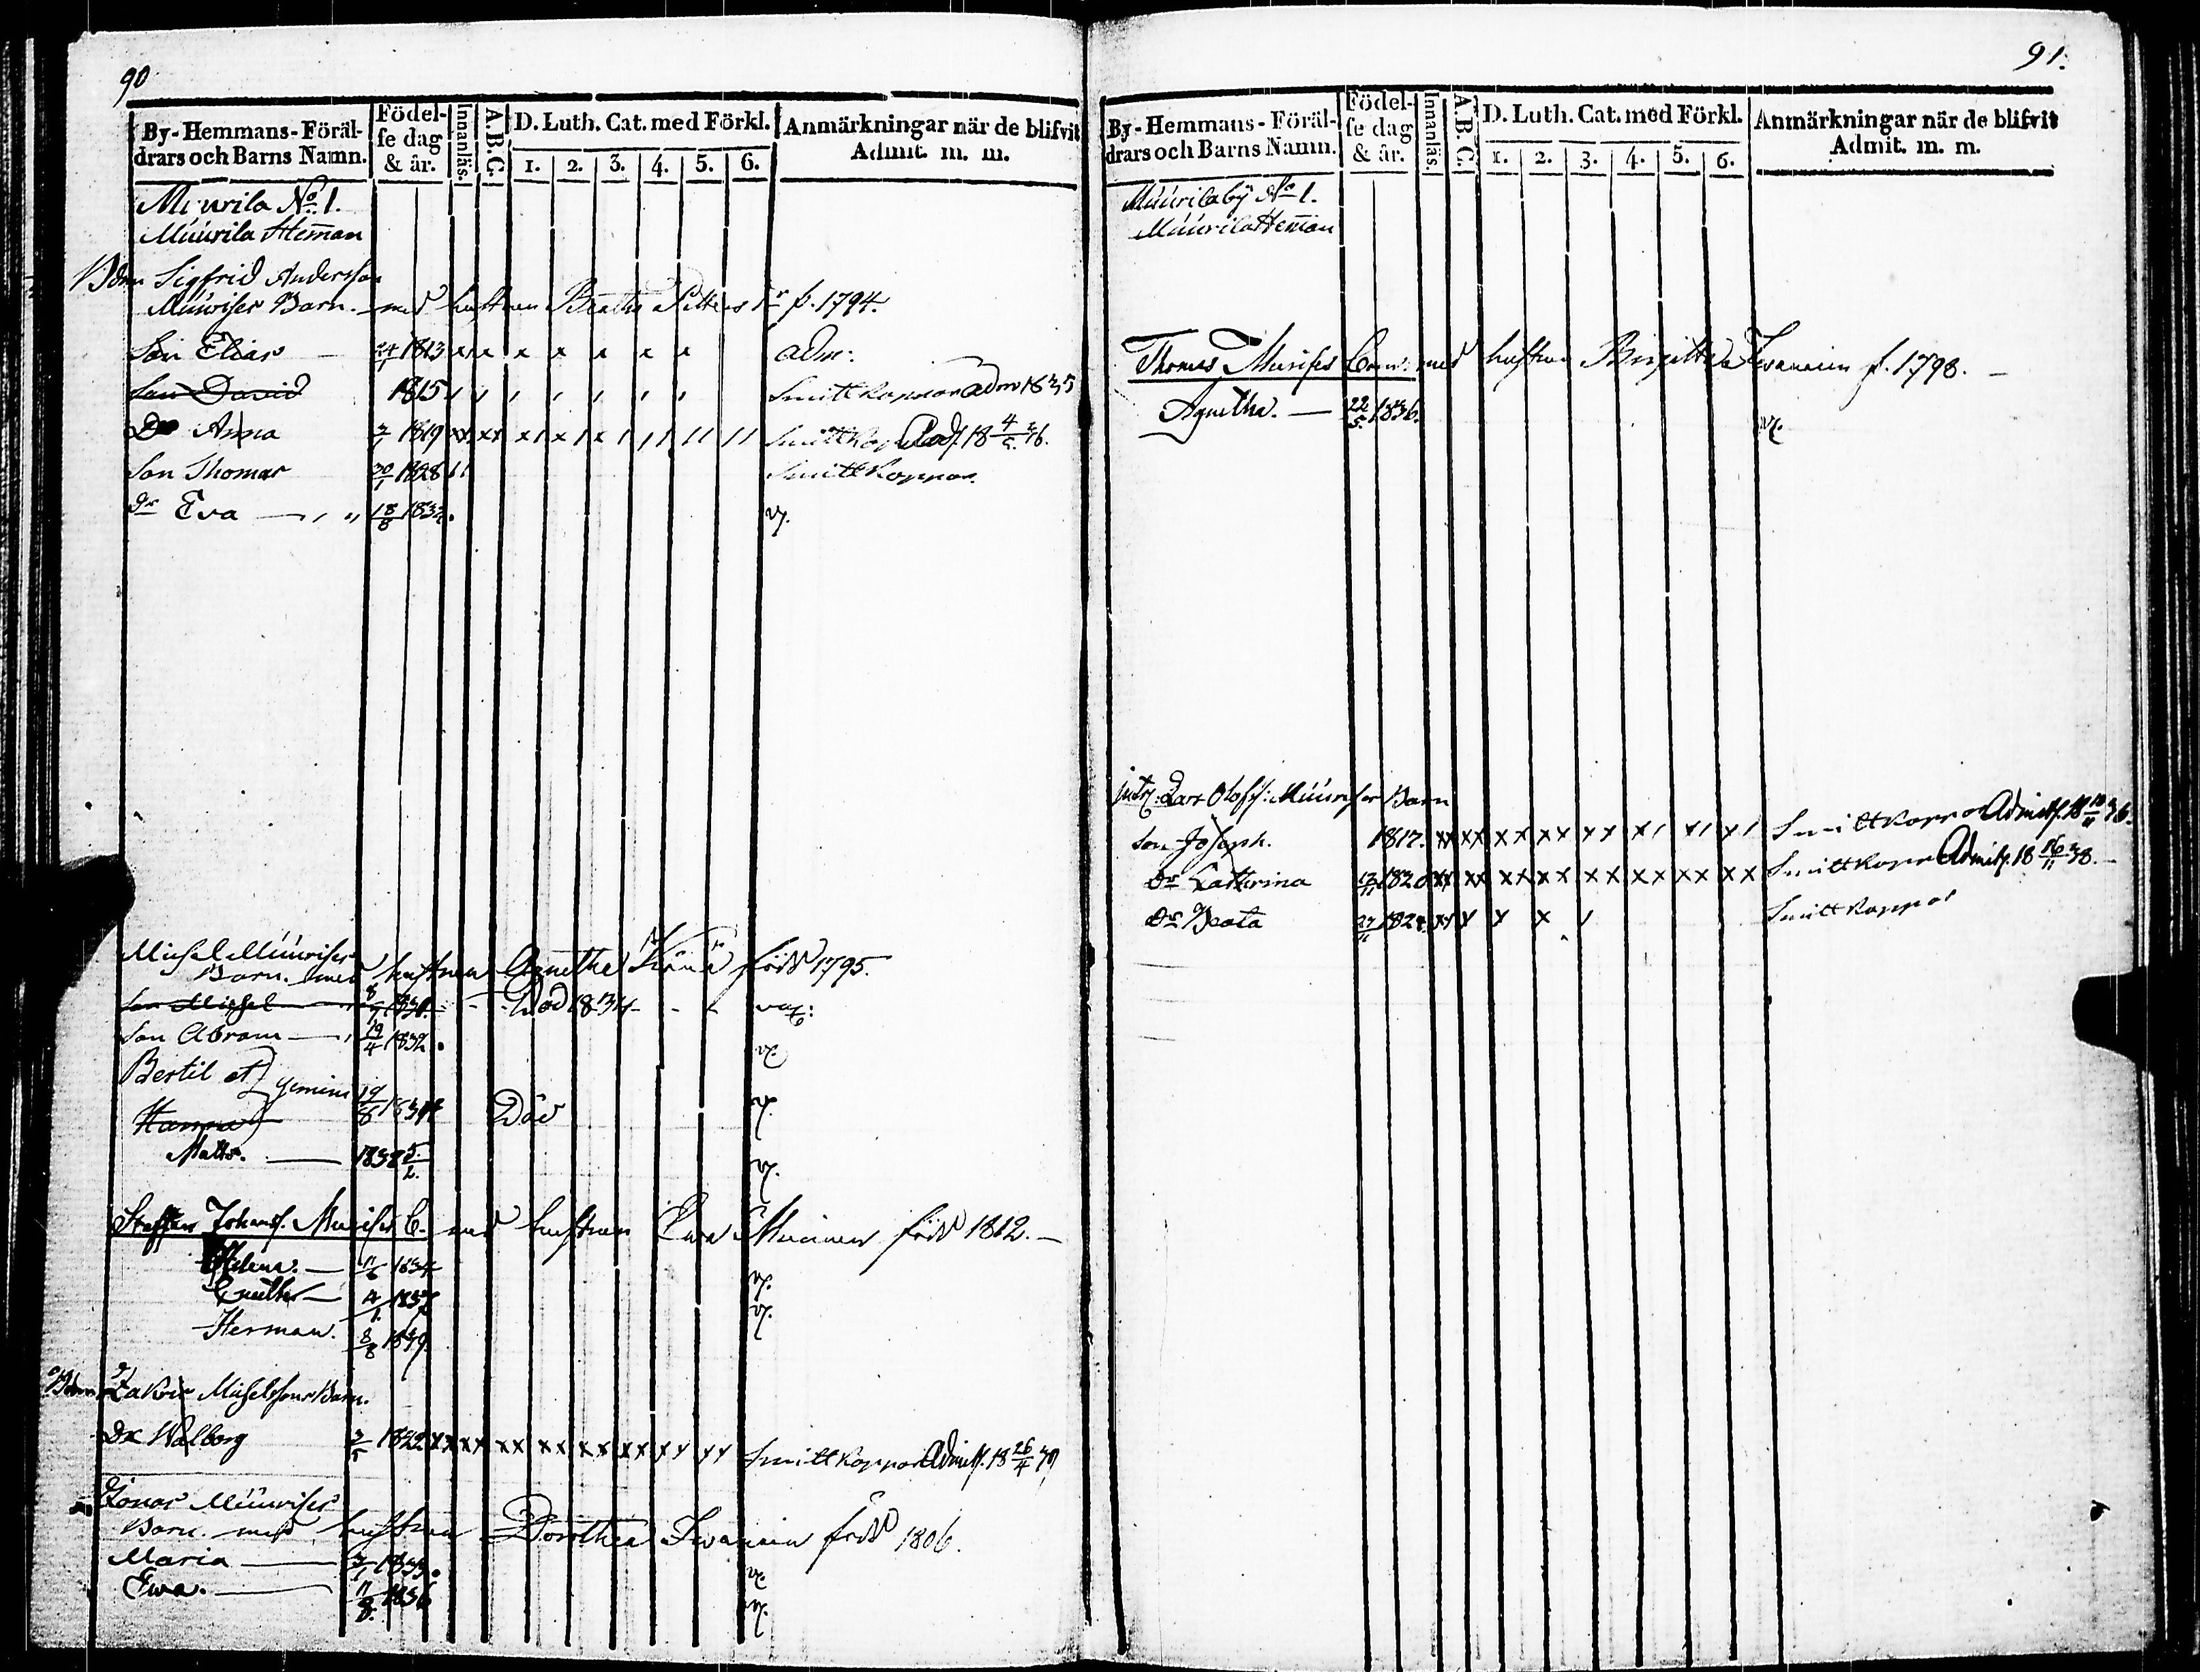 90
By-Hemmans-Föräl-
drars och Barns Namn.
Födel-
se dag
& år.
Innanläs.
A.B.C.
D. Luth. Cat. med Förkl.
1. 2. 3. 4. 5. 6.
Anmärkningar när de blifvit
Admit. m. m.
No 1.
Muurila Heman
Bdn Sigfrid Andersson
Barn. med hustrun Beatha f. 1794.
Son Elias 24/1 1813 x x x x x x x x adm:
Son David 1815 Smittkoppor adm 1835
Dr Anna 1819 xx xx x1 x1 x1 11 11 11 18 4/5 36.
Son Thomas 30/1 1828 11 Smittkoppor
dr Eva 18/8 1832. v.
Michel
Barn. med hustrun Agnetha född 1795.
Son Michel Död 1834 vax:
Son Abram 19/4 1832. v.
Bertil et
gemini 19/8 1834 Död v.
Hanna
Matts. 1838 5/2. v.
Steffan Johans. B. med hustrun Ewa född 1812.
Helena. 11/6 1834 v.
4/1. 1837 v.
Herman. 8/8 1839
Michelsons Barn.
Dr Walborg 3/5 1822 xx xx xx xx xx xx xx xx Smittkoppor Admitt. 18 26/4 39
Jonas
Barn. med hustrun Dorothea Iwanain född 1806.
Maria 3/1 1833. v.
Ewa. 11/8. 1836 v.
91.
By-Hemmans-Föräl-
drars och Barns Namn.
Födel-
se dag
& år.
Innanläs.
A.B.C.
D. Luth. Cat. med Förkl.
1. 2. 3. 4. 5. 6.
Anmärkningar när de blifvit
Admit. m. m.
Muurila by No 1.
Muurila Heman
Thomas Barn. med hustrun Birgitta Iwanain f. 1798.
Agnetha. 22/5. 1836. v.
Lars Olofs: Barn
son Joseph. 1817. xx xx xx xx xx x1 x1 x1 Smittkoppor Admitt. 18 36.
Dr Catherina 1820 xx xx xx xx xx xx xx xx Smittkoppor Admitt. 18 16/11 38.
Dr Beata xx x x x Smittkoppor